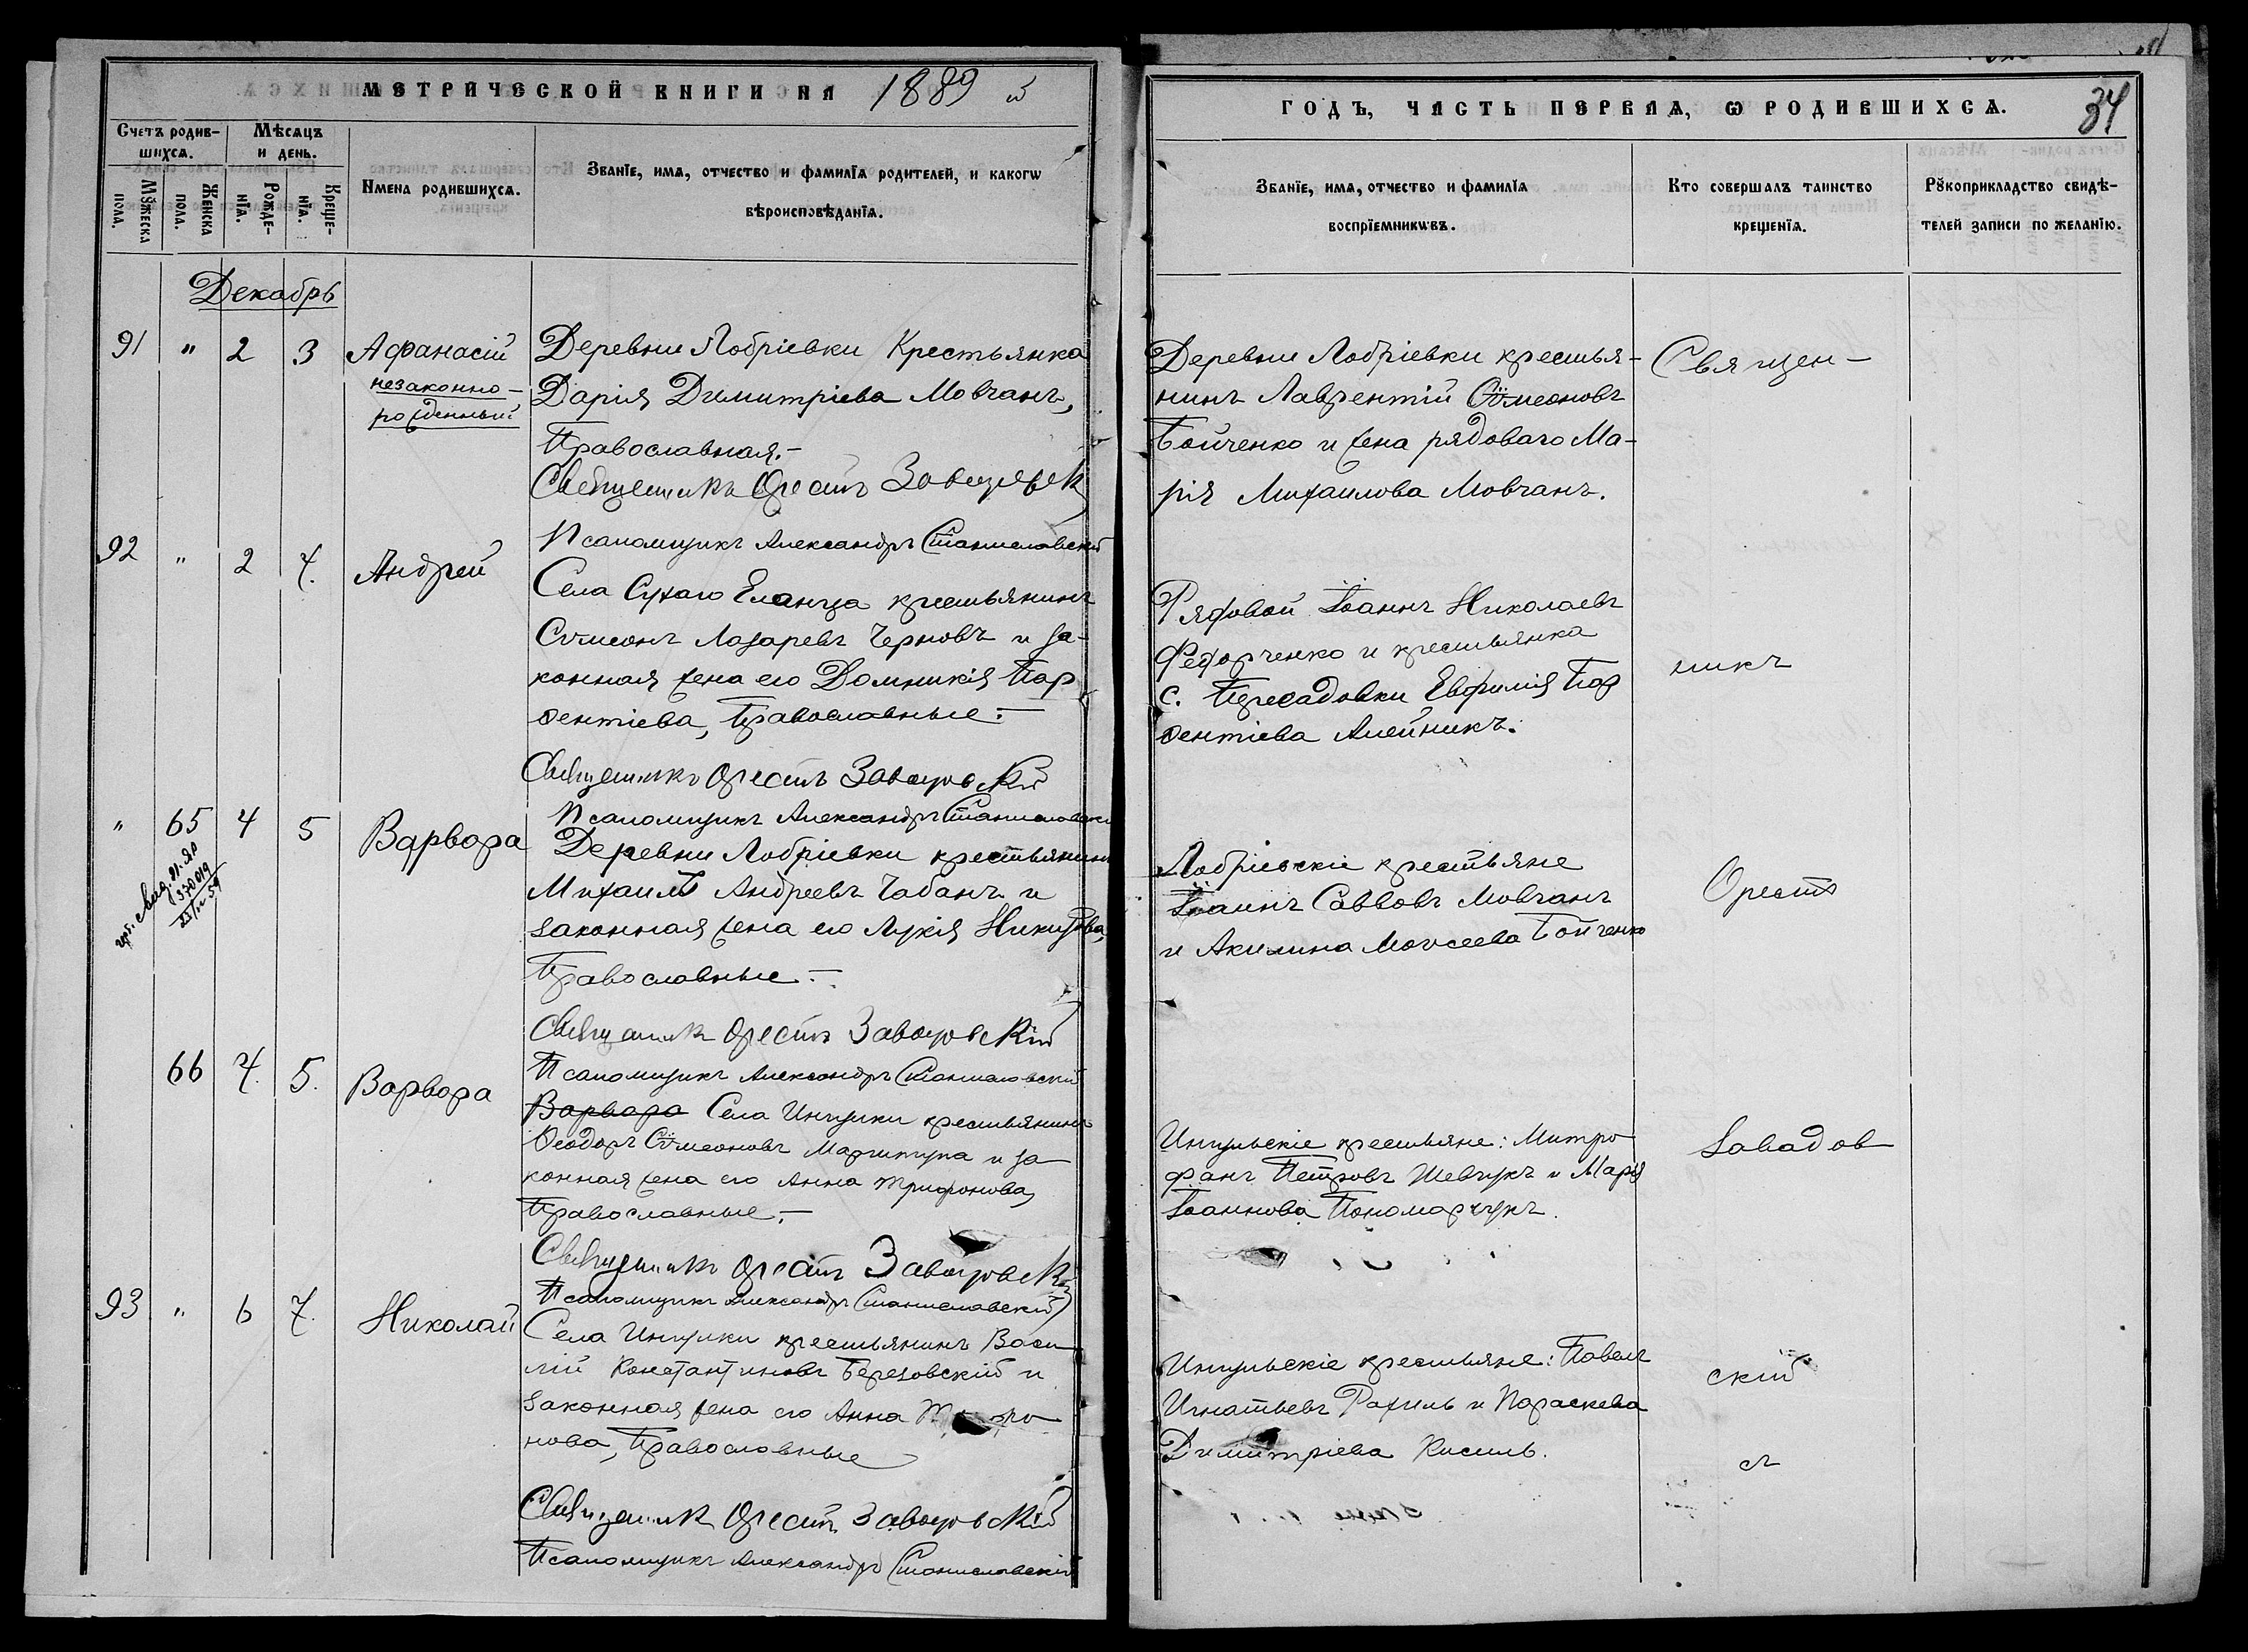 МЕТРИЧЕСКОЙ КНИГИ НА 1889 й
Счетъ родив-
шихся.
Мѣсяцъ
и день.
Мꙋжеска
пола.
Женска
пола.
Рожде-
нїя.
Креще-
нїя.
Имена родившихся.
Званїе, имя, отчество и фамилїя родителей, и какогѡ
вѣроисповѣданїя.
Декабрь
91 " 2 3 Афанасій
незаконно-
рожденный
Деревни Лобріевки Крестьянка
Дарія Димитріева Мовчанъ,
Православная.-
Священникъ Орестъ Завадовск
Псаломщикъ Александръ Станиславскій
92 " 2 4. Андрей
Села Сухаго Еланца крестьянинъ
Сѵмеонъ Лазаревъ Черновъ и за-
конная жена его Домникія Пар
ѳентіева, Православные.-
Священникъ Орестъ Завадовскій
Псаломщикъ Александръ Станиславскі
" 65 4 5 Варвара
Деревни Лобріевки крестьянинъ
Михаилъ Андреевъ Чабанъ и
законная жена его Лукія Никитова,
Православные.-
Священникъ Орестъ Завадовскій
Псаломщикъ Александръ Станиславскій
66 4. 5. Варвара
Варвара Села Ингулки крестьянинъ
Ѳеодоръ Сѵмеоновъ и за
конная жена его Анна Трифонова,
Православные.-
Священникъ Орестъ Завадовскій
Псаломщикъ Александръ Станиславскій
93 " 6 7. Николай
Села Ингулки крестьянинъ Васи
лій Константиновъ Березовскій и
законная жена его Анна
нова, Православные
Священникъ Орестъ Завадовскій
Псаломщикъ Александръ Станиславскій
ГОДЪ, ЧАСТЬ ПЕРВАЯ, Ѡ РОДИВШИХСЯ.
34
Званїе, имя, отчество и фамилїя
воспрїемникѡвъ.
Кто совершалъ таинство
крещенїя.
Рꙋкоприкладство свидѣ-
телей записи по желанїю.
Деревни Лобріевки крестья-
нинъ Лаврентій Сѵмеоновъ
Бойченко и жена рядоваго Ма-
рія Михаилова Мовчанъ.
Священ-
Рядовой Іоаннъ Николаевъ
Федорченко и крестьянка
с. Пересадовки Евфимія Пар
ѳентіева Алейникъ.
никъ
Лобріевскіе крестьяне
Іоаннъ Савовъ Мовчанъ
и Акилина Моѵсеева Бойченко
Орестъ
Ингульскіе крестьяне: Митро
фанъ Петровъ Шевчукъ и Марія
Іоаннова Пономарчукъ.
Завадов
Ингульскіе крестьяне: Павелъ
Игнатьевъ Рахиль и Параскева
Димитріева Кисиль.
скій